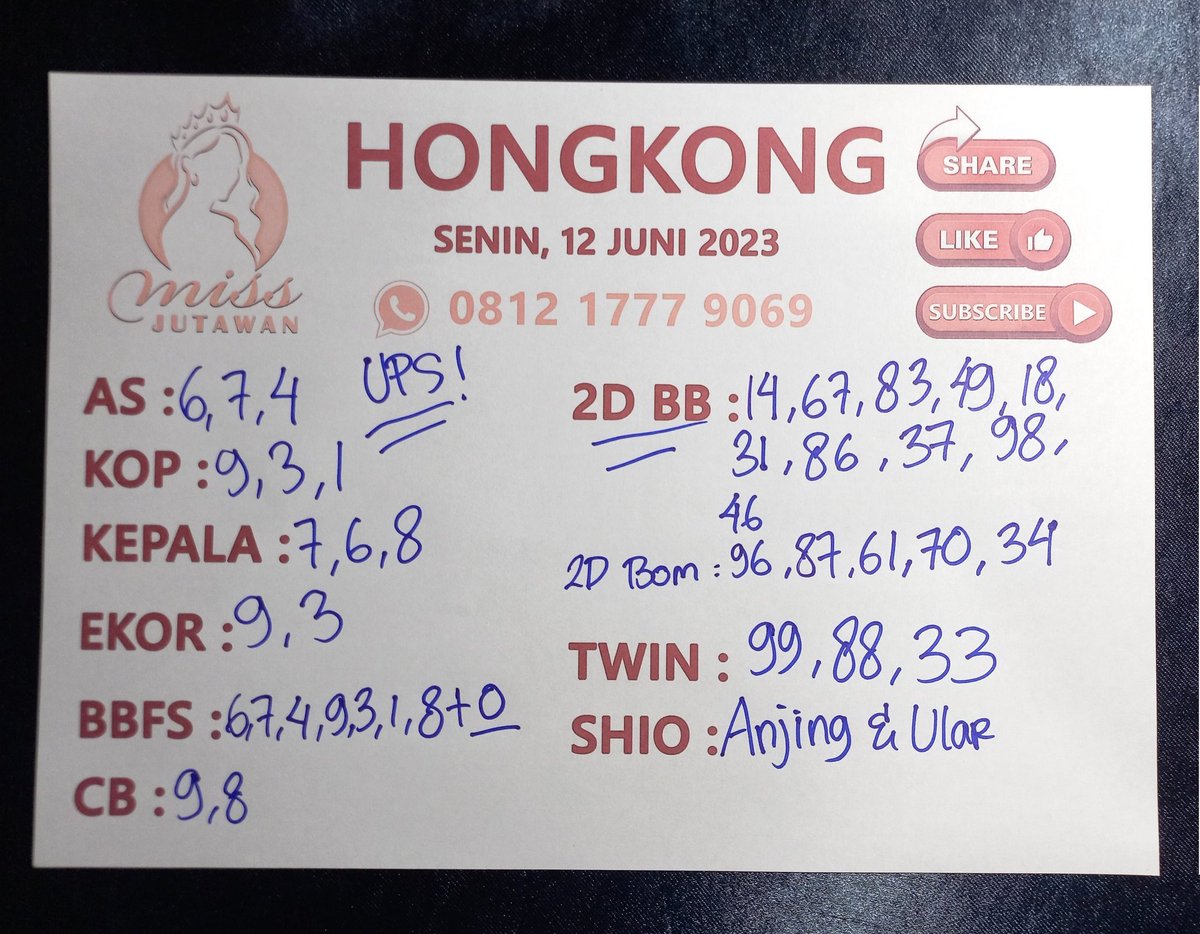 miss
JUTAWAN
HONGKONG
SENIN, 12 JUNI 2023
0812 1777 9069
SHARE
LIKE
SUBSCRIBE
AS : 6, 7, 4
UPS!
KOP : 9, 3, 1
KEPALA : 7, 6, 8
EKOR : 9, 3
BBFS : 6, 7, 4, 9, 3, 1, 8 + 0
CB : 9, 8
2D BB : 14, 67, 83, 49, 18,
31, 86, 37, 98,
46
2D Bom : 96, 87, 61, 70, 34
TWIN : 99, 88, 33
SHIO : Anjing & Ular